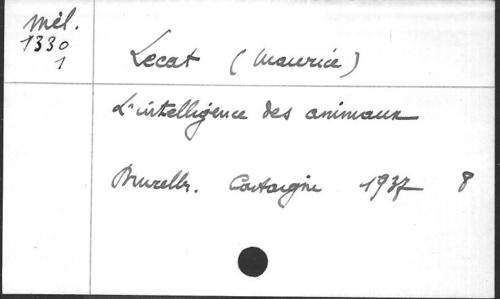 Mél.
1330
1
Lecat (Maurice)
L'intelligence des animaux
Bruxelles. Castaigne 1937 8